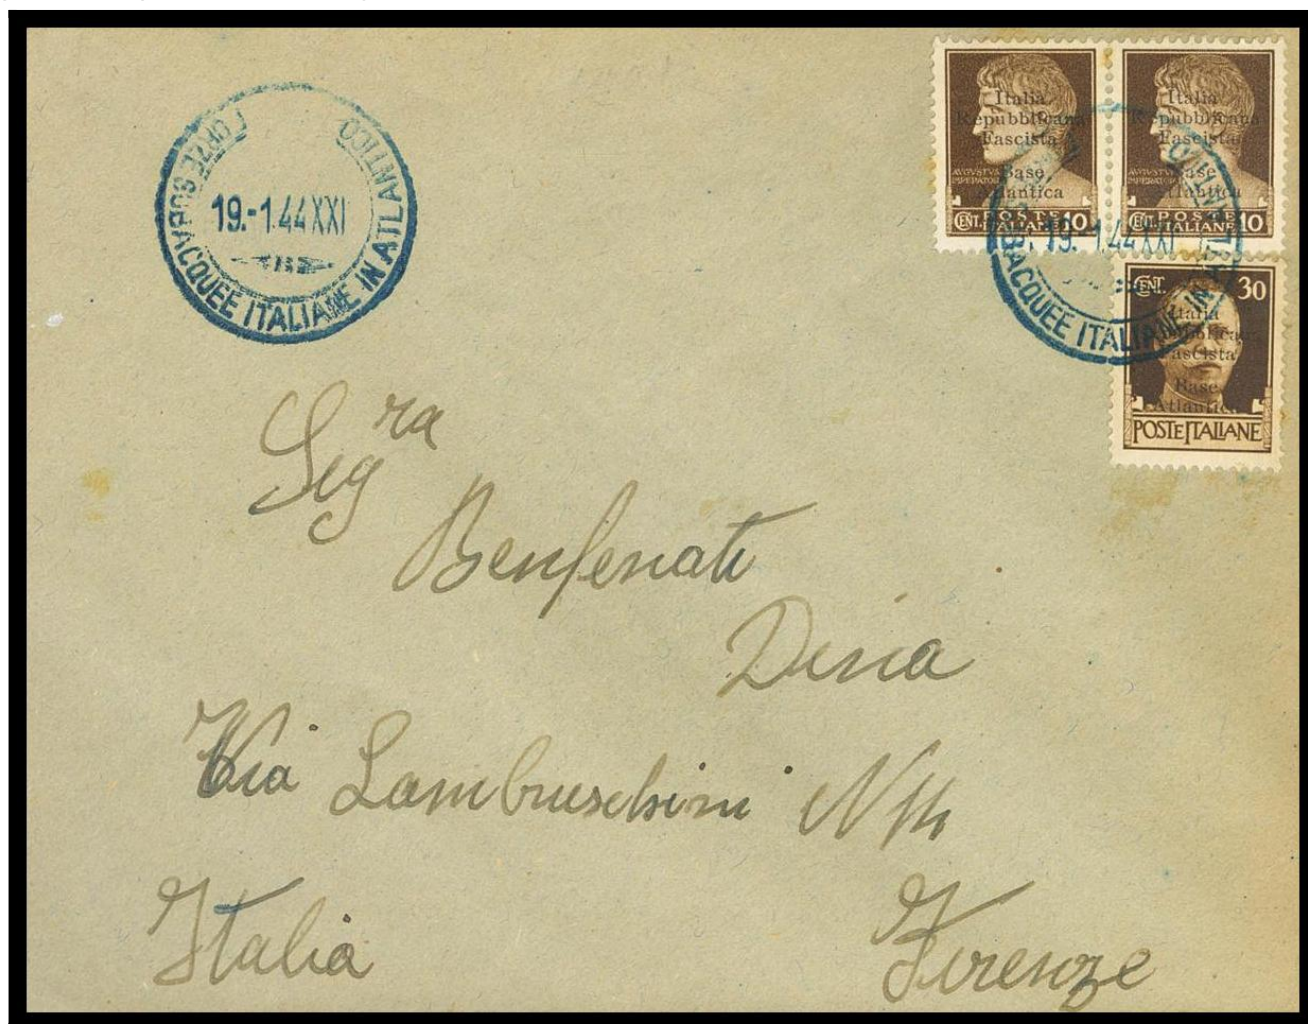 FORZE SUBACQUEE ITALIANE IN ATLANTICO
19.-1.44 XXI
Italia
Repubblicana
Fascista
Base
Atlantica
AVGVSTVS
IMPERATOR
CENT. POSTE ITALIANE 10
Italia
Repubblicana
Fascista
Base
Atlantica
AVGVSTVS
IMPERATOR
CENT. POSTE ITALIANE 10
BACQUEE ITALIANE IN ATLANTICO
19.-1.44 XXI
CENT. 30
Italia
Repubblicana
Fascista
Base
Atlantica
POSTE ITALIANE
Sigra
Benfenati
Dina
Via Lambruschini N
Italia Firenze